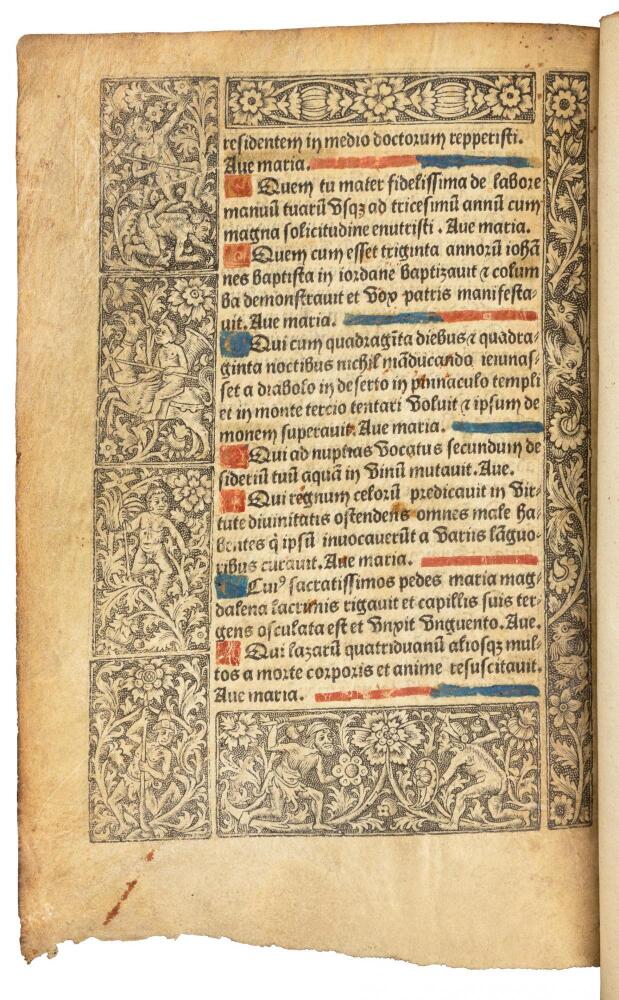 residentem in medio doctorum repperisti.
Aue maria.
Quem tu mater fidelissima de labore
manuū tuarū vsqꝫ ad tricesimū annū cum
magna solicitudine enutristi. Aue maria.
Quem cum esset triginta annorū iohā
nes baptista in iordane baptizauit ⁊ colum
ba demonstrauit et vox patris manifesta-
uit. Aue maria.
Qui cum quadragīta diebus ⁊ quadra-
ginta noctibus nichil māducando ieiunas-
set a diabolo in deserto in pinnaculo templi
et in monte tercio tentari voluit ⁊ ipsum de
monem superauit. Aue maria.
Qui ad nuptias vocatus secundum de
sideriū tuū aquā in vinū mutauit. Aue.
Qui regnum celorū predicauit in vir-
tute diuinitatis ostendens omnes male ha-
bentes q̄ ipsū inuocauerūt a variis lāguo-
ribus curauit. Aue maria.
Cuiꝰ sacratissimos pedes maria mag-
dalena lacrimis rigauit et capillis suis ter-
gens osculata est et vnxit vnguento. Aue.
Qui lazarū quatriduanū aliosqꝫ mul-
tos a morte corporis et anime resuscitauit.
Aue maria.